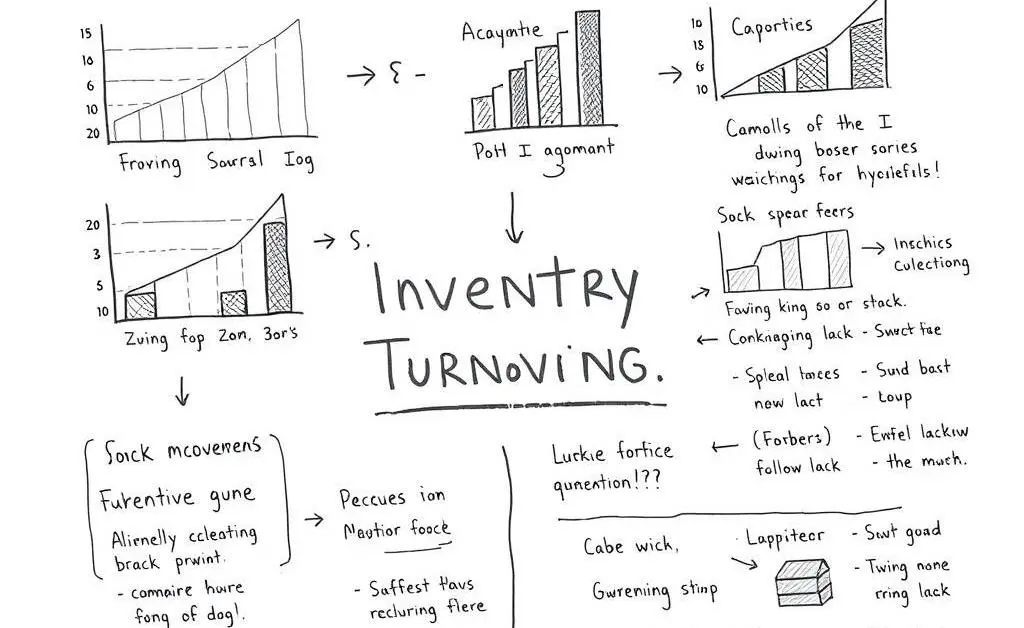 15
10
6
10
20
Froving Sourral Iog
→ ξ -
Acayntie
PoH I agomant
→
10
18
6
10
Caporties
Camolls of the I
dwing boser sories
weichings for hycriefils!
20
3
5
10
Zving fop Zon, 3or's
→ S.
INVENTRY
TURNOVING.
Sock spear feers
→ Inschics
Culectiong
Faving king so or stack.
← Conkinaging lack - Swct fae
- Spleal tmces
now lact
- Sund bast
- Loup
← (Forbers)
follow lack
- Ewfel lackiw
- the much.
Soick mcovemens
Furentive gune
Alienelly ccleating
brack prwint.
- comnaire howre
fong of dog!.
→ Peccues ion
Naytior foock
- Saffest Havs
recluring flere
Lurkie fortice
qunention!??
Cabe wick,
Gwrenining stinp
Lappiteor
- Swt goad
- Twing none
rring lack